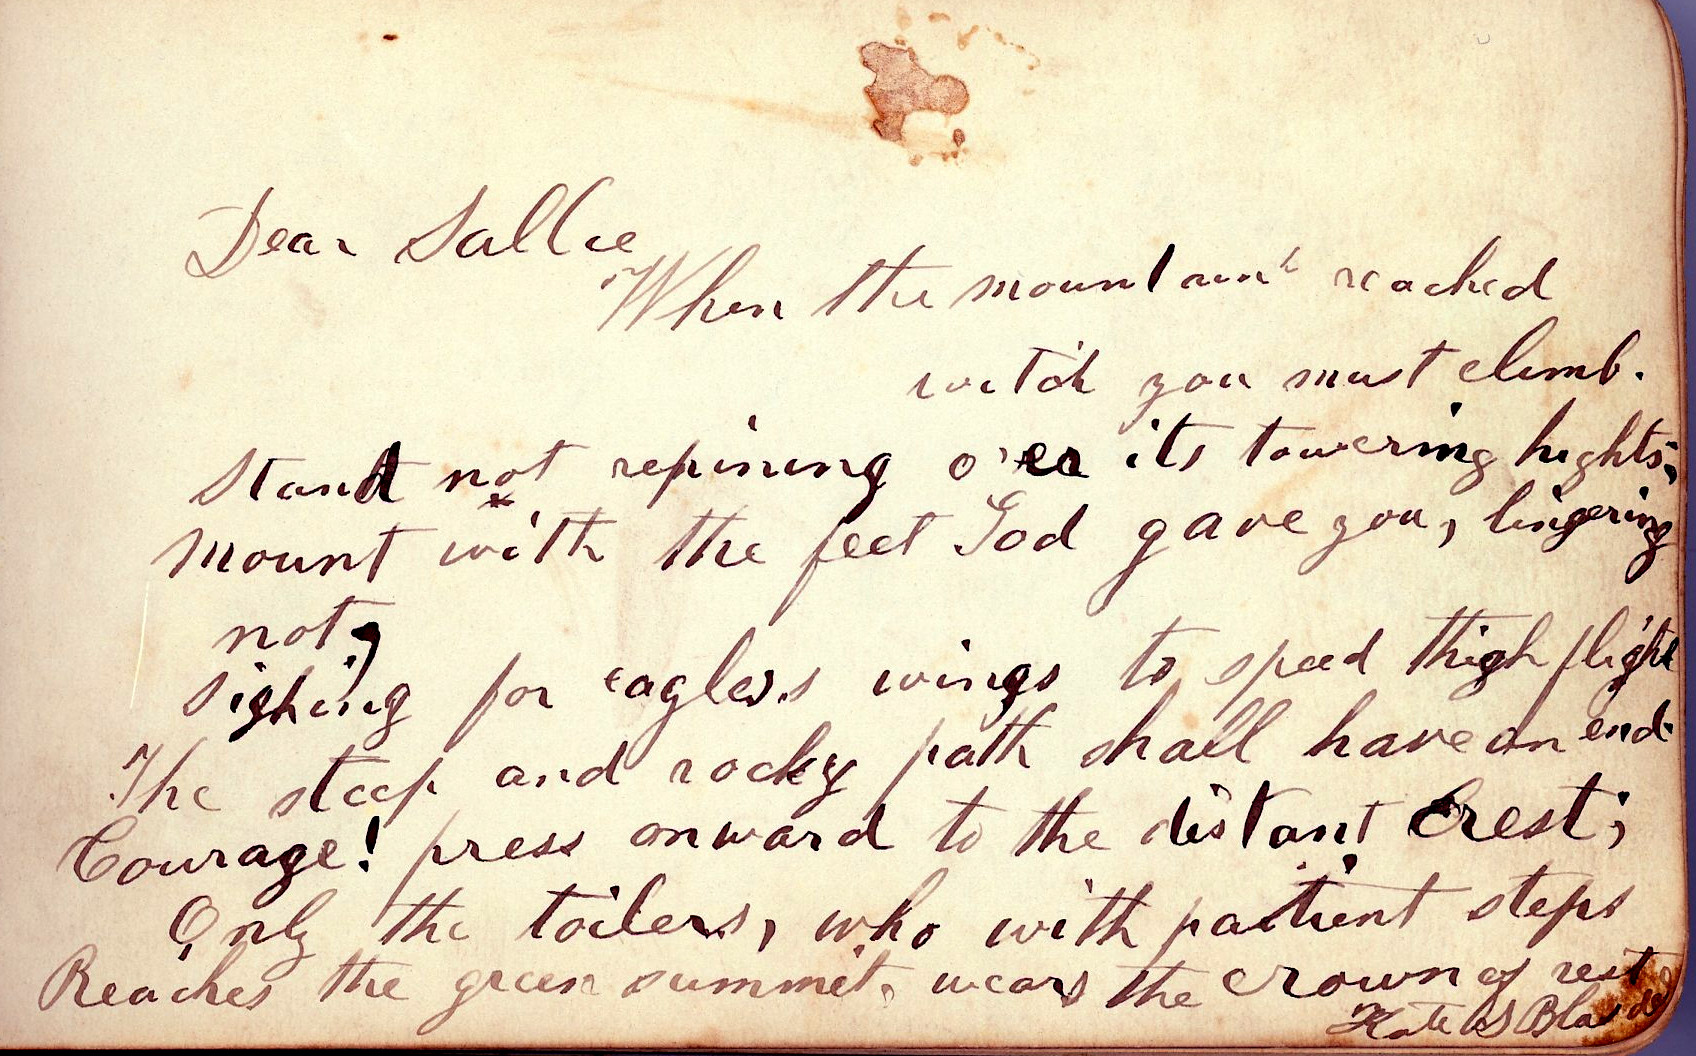 Dear Sallie
When the mountain's reached
witch you must climb.
Stand not repining o'er its towering hights;
Mount with the feet God gave you, lingering
not,
Sighing for eagles's wings to speed thigh flight
The steep and rocky path shall have an end.
Courage! press onward to the distant Crest;
Only the toilers, who with patient steps
Reaches the green summit, wears the crown of rest
Kate S